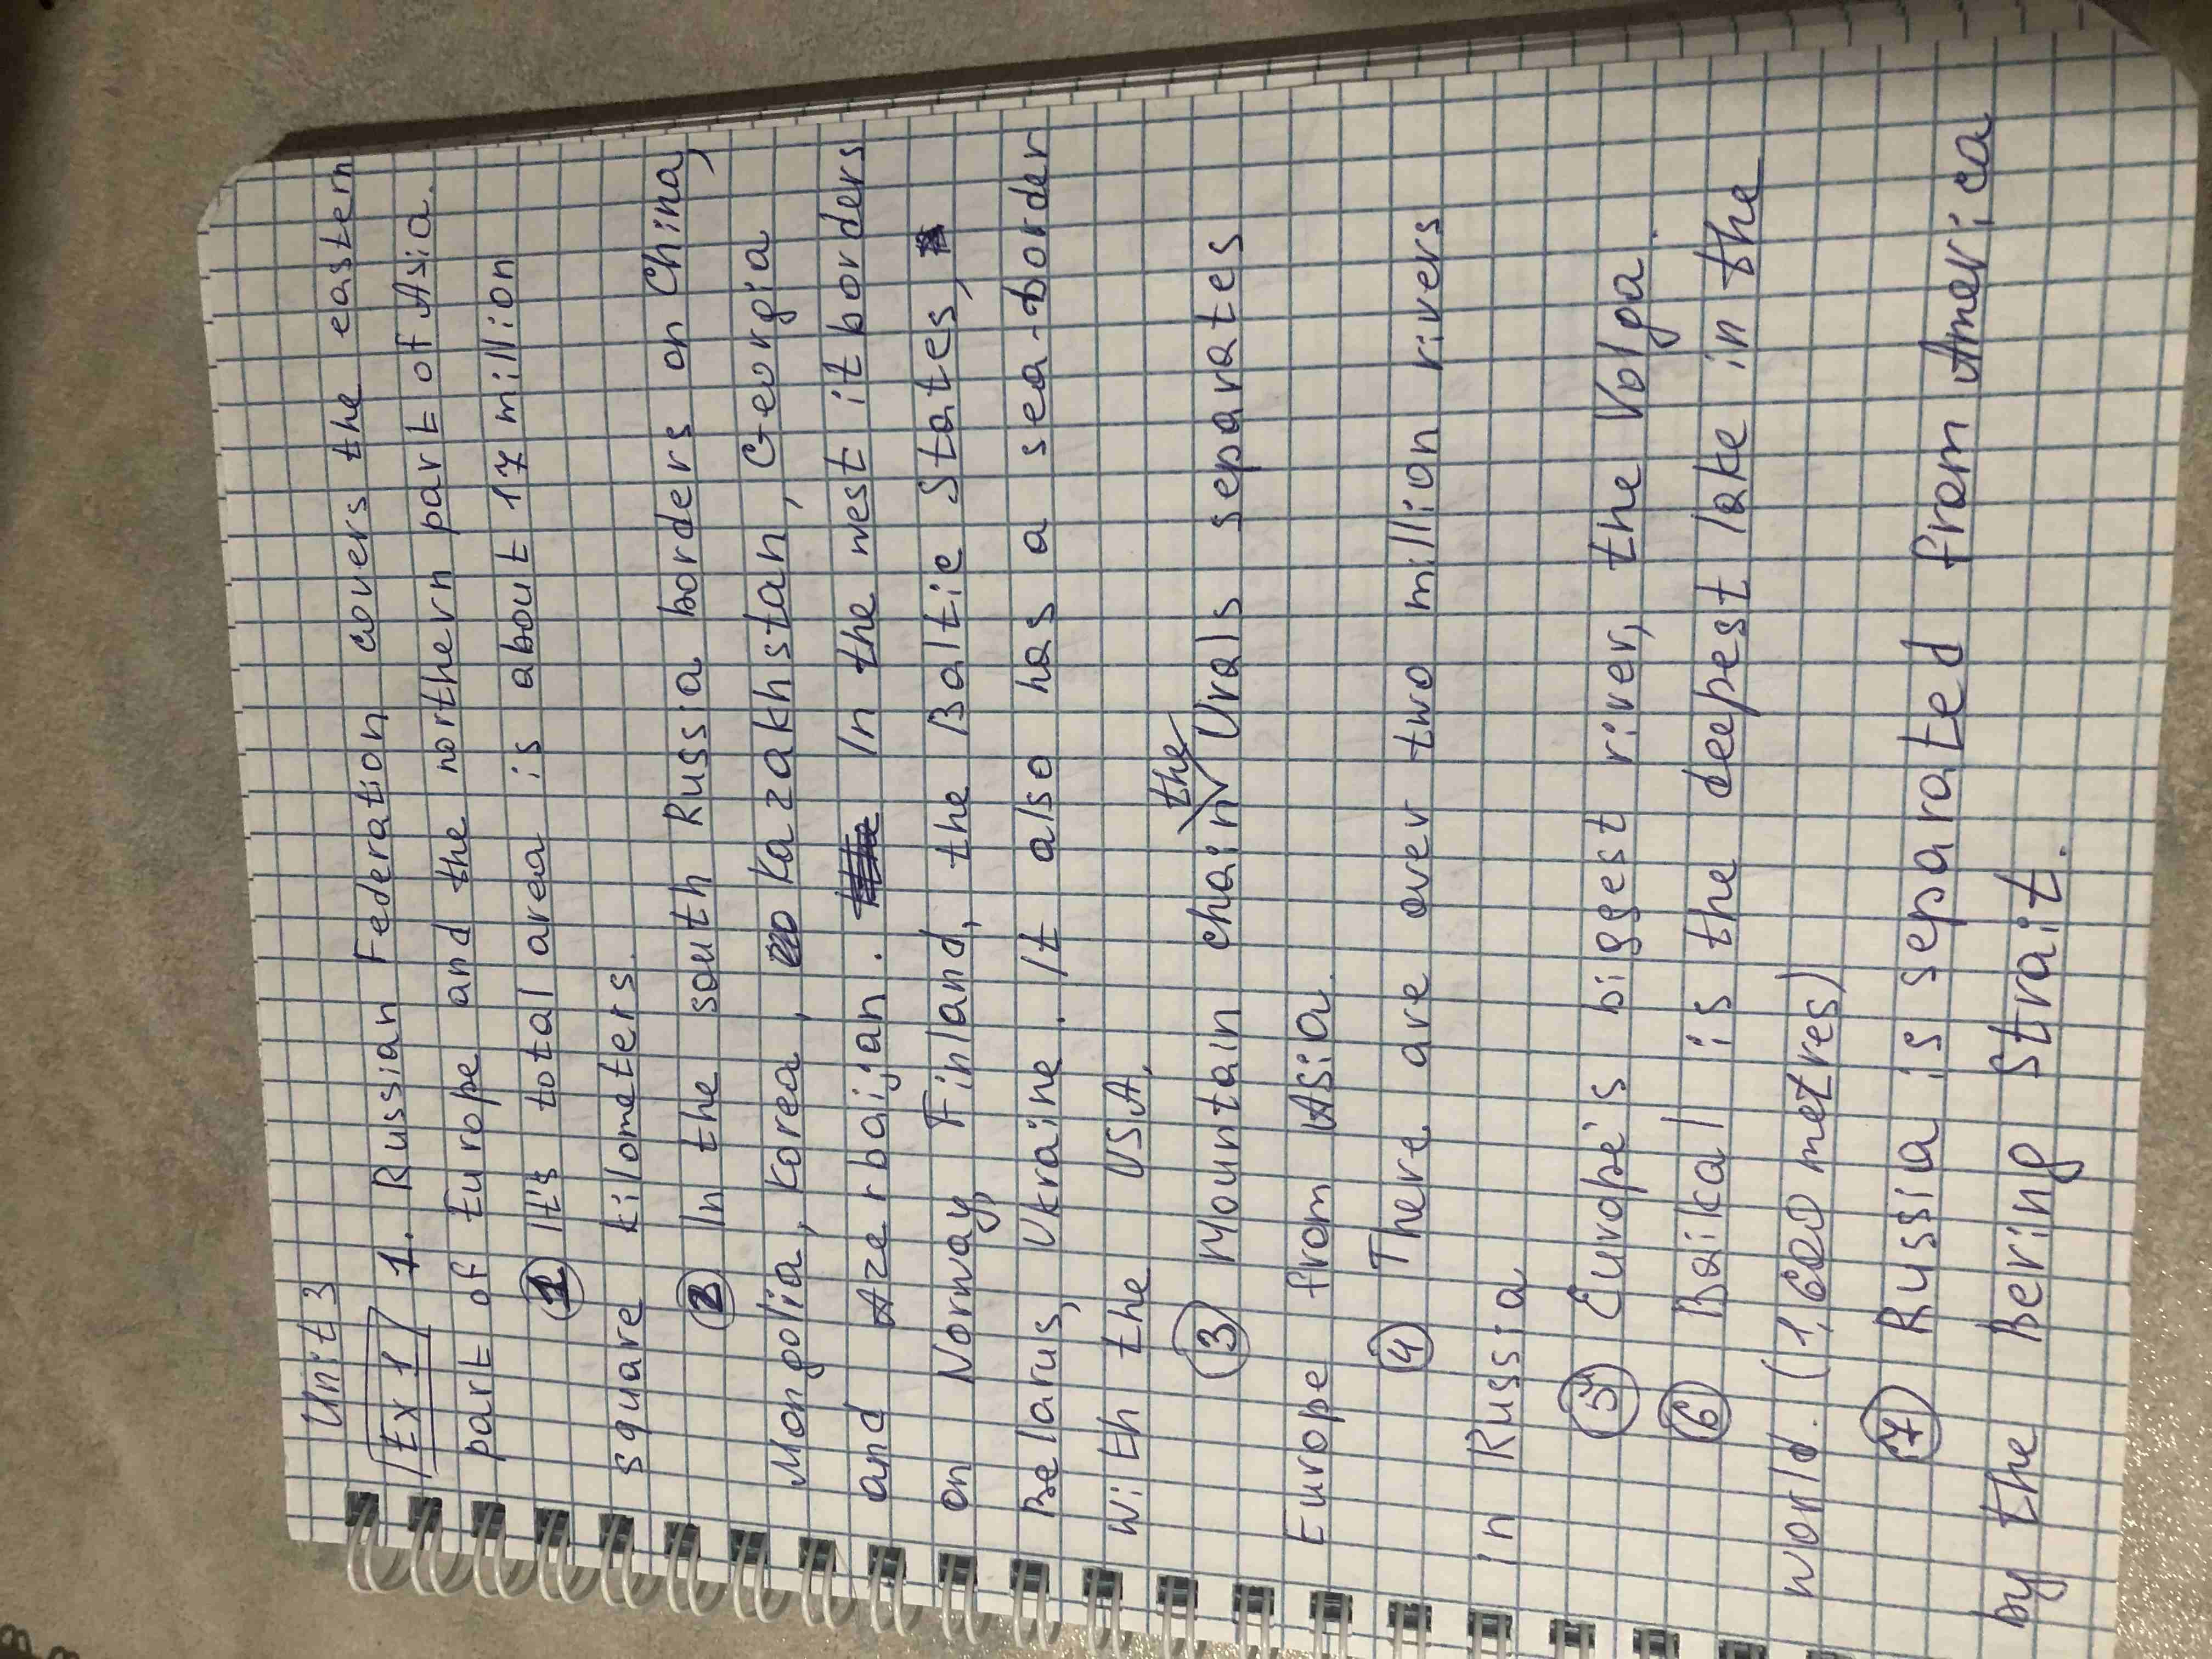 Unit 3
Ex 1 1. Russian Federation covers the eastern
part of Europe and the northern part of Asia.
1 It's total area is about 17 million
square kilometers.
2 In the south Russia borders on China,
Mongolia, Korea, Kazakhstan, Georgia
and Azerbaijan. In the west it borders
on Norway, Finland, the Baltic States,
Belarus, Ukraine. It also has a sea-border
with the USA.
3 Mountain chain the Urals separates
Europe from Asia.
4 There are over two million rivers
in Russia
5 Europe's biggest river, the Volga.
6 Baikal is the deepest lake in the
world. (1,600 metres)
7 Russia is separated from America
by the Bering Strait.